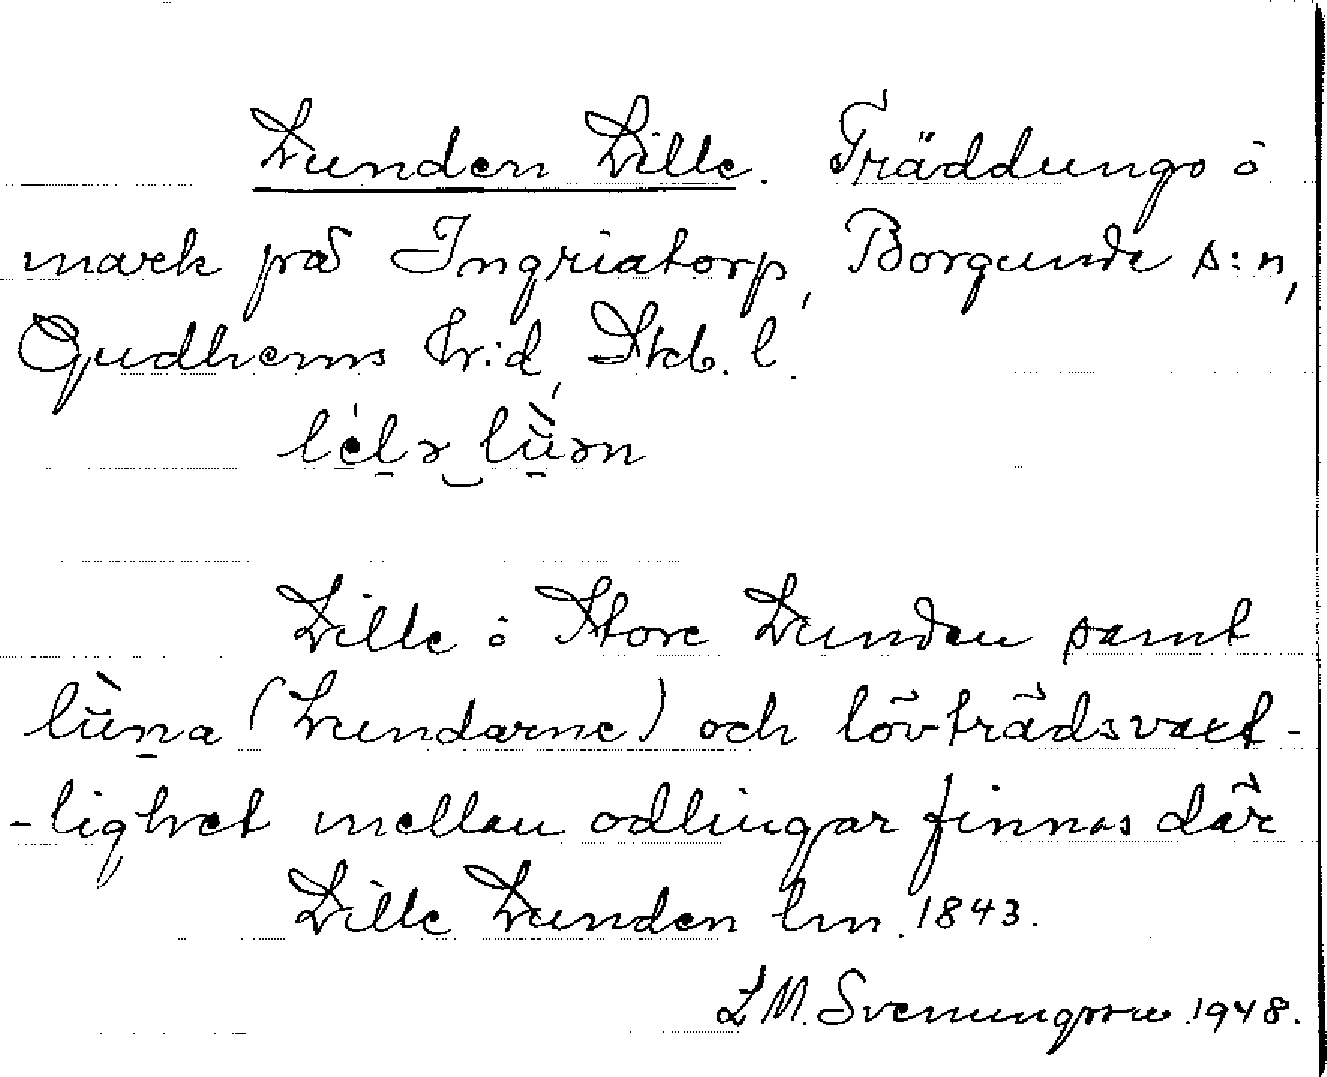 Lunden Lille. Träddunge ö
mark på Ingriatorp, Borgunda s:n,
Gudhems hr:d, Skb. l.
léḷə‿lùən
Lille ö Store Lunden samt
lùṉa (Lundarne) och lövträdsväxt-
-lighet mellan odlingar finnas där
Lille Lunden lm. 1843.
L M. Svenungsson 1948.